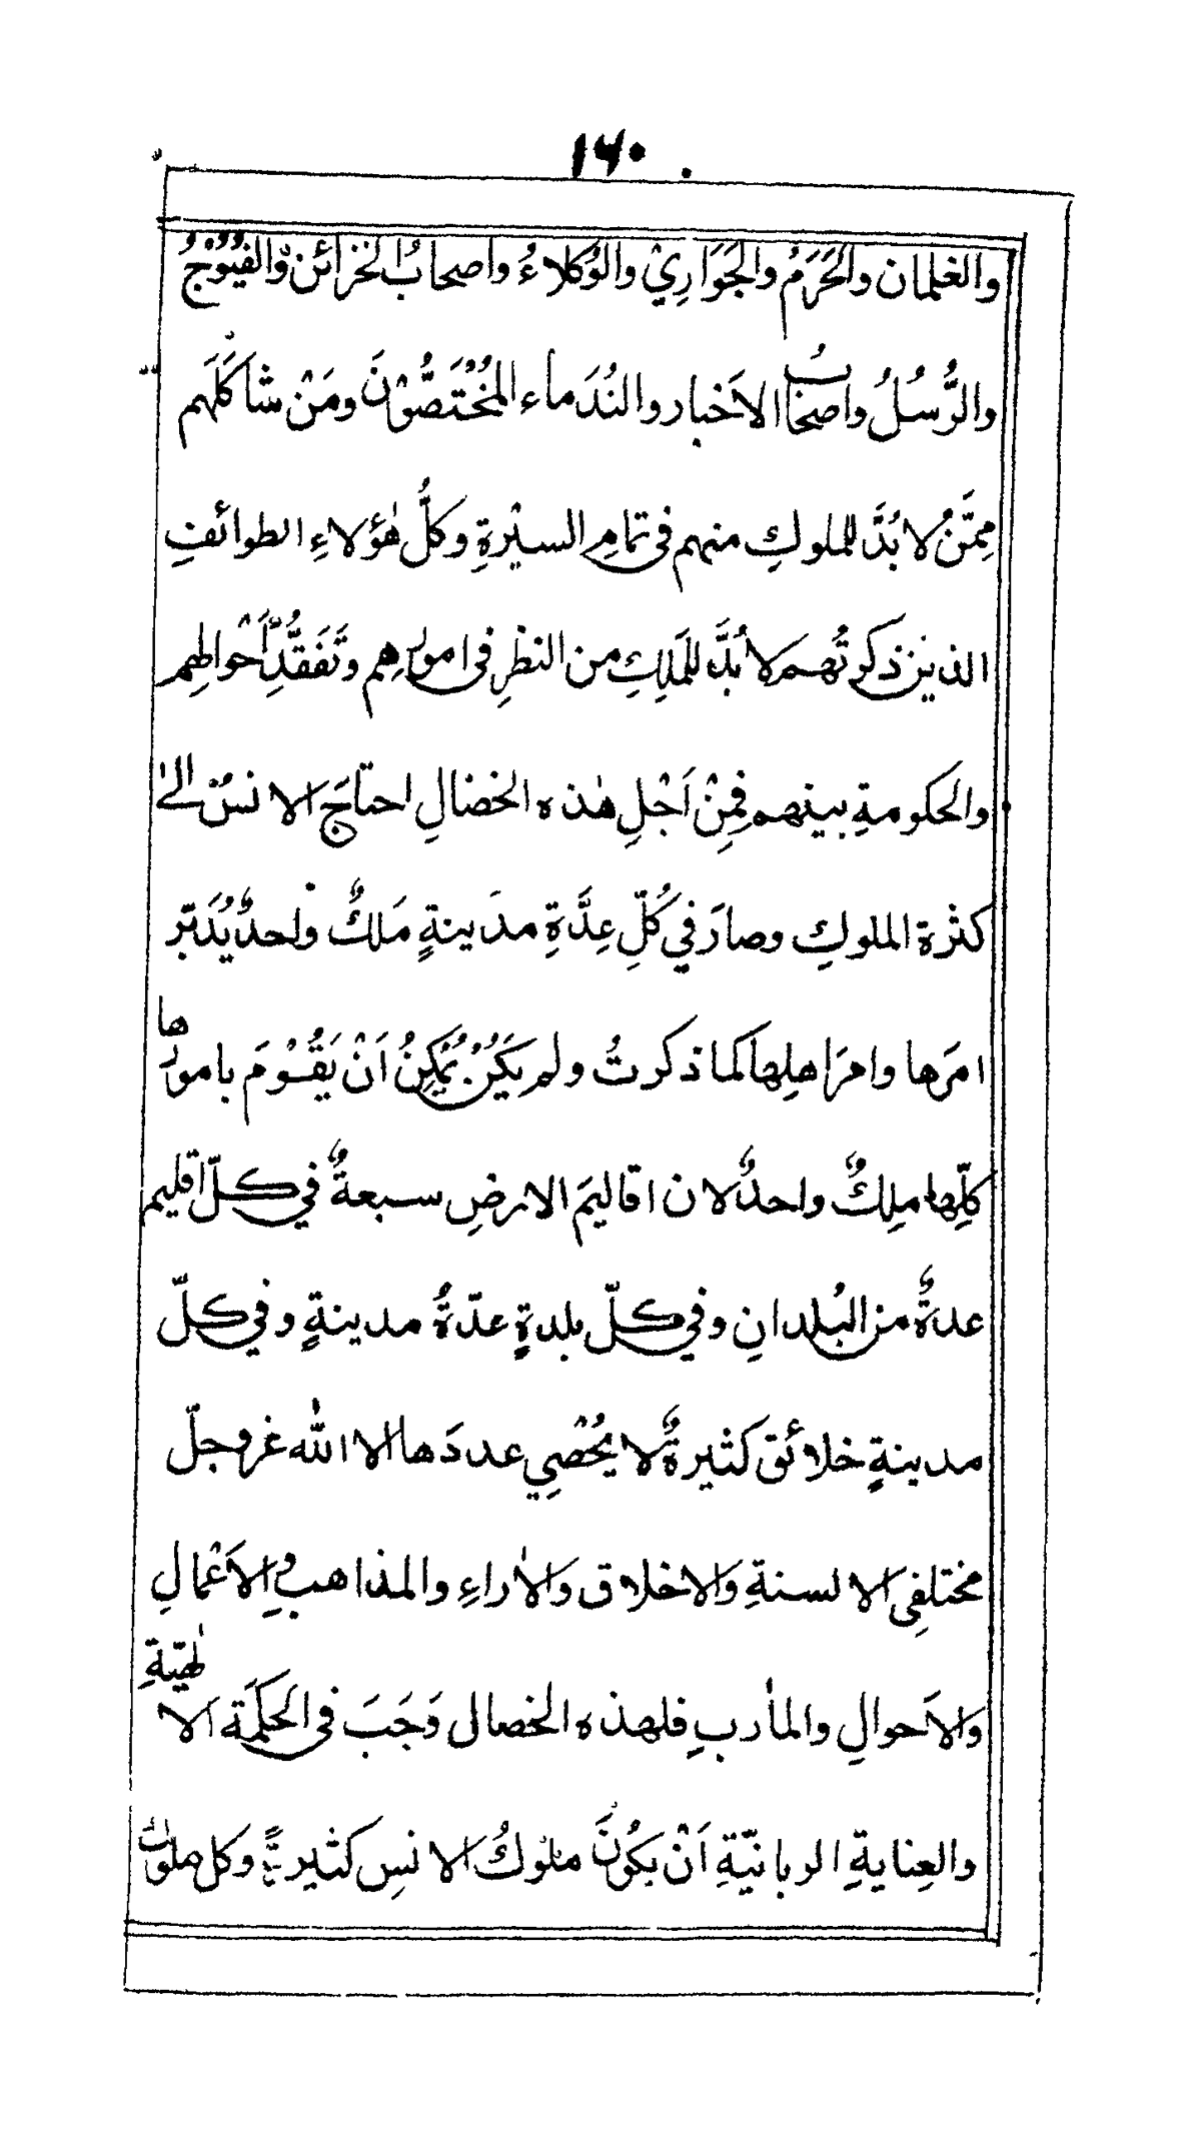 ١٦٠
والغلمان والحَرَمُ والجَوَارِيْ والوُكلاءُ واصحابُ الخزائن والفُيُوْجُ
والرُّسُلُ واصحابُ الاَخبار والنُدَماء المُخْتَصُّوْنَ ومَنْ شاكَلَهم
مِمَّنْ لا بُدَّ للملوكِ منهم فى تمامِ السيْرةِ وكلُّ هٰؤلاءِ الطوائفِ
الذين ذكرتُهم لا بُدَّ للمَلِكِ من النظرِ فى امورِهم وتَفَقُّدِ اَحْوالِهم
والحكومةِ بينهم فمِنْ اَجْلِ هٰذه الخصالِ احتاجَ الانسُ الىٰ
كثرة الملوكِ وصارَ في كُلِّ عِدَّةِ مدَينةٍ مَلكٌ واحدٌ يُدَبّر
امرَها وامرَ اهلِها كما ذكرتُ ولم يَكُنْ يُمْكِنُ اَنْ يَقُوْمَ بامورها
كلِّها ملِكٌ واحدٌ لان اقاليمَ الارضِ سبعةٌ في كلّ اقليم
عدةٌ من البُلدانِ وفي كلّ بلدةٍ عدّةُ مدينةٍ وفي كلّ
مدينةٍ خلائق كثيرةٌ لا يُحْصِي عددَها الا الله عز وجلّ
مختلفِى الالسنةِ وَالاخلاق وَالاٰراءِ والمذاهبِ وَالاَعْمالِ
وَالاَحوالِ والمأربِ فلهذه الخصال وَجَبَ فى الحكمَة الالٰهيّةِ
والعِنايةِ الربانيّةِ اَنْ يكُونَ ملوكُ الانسِ كثيرةً وكل ملوك